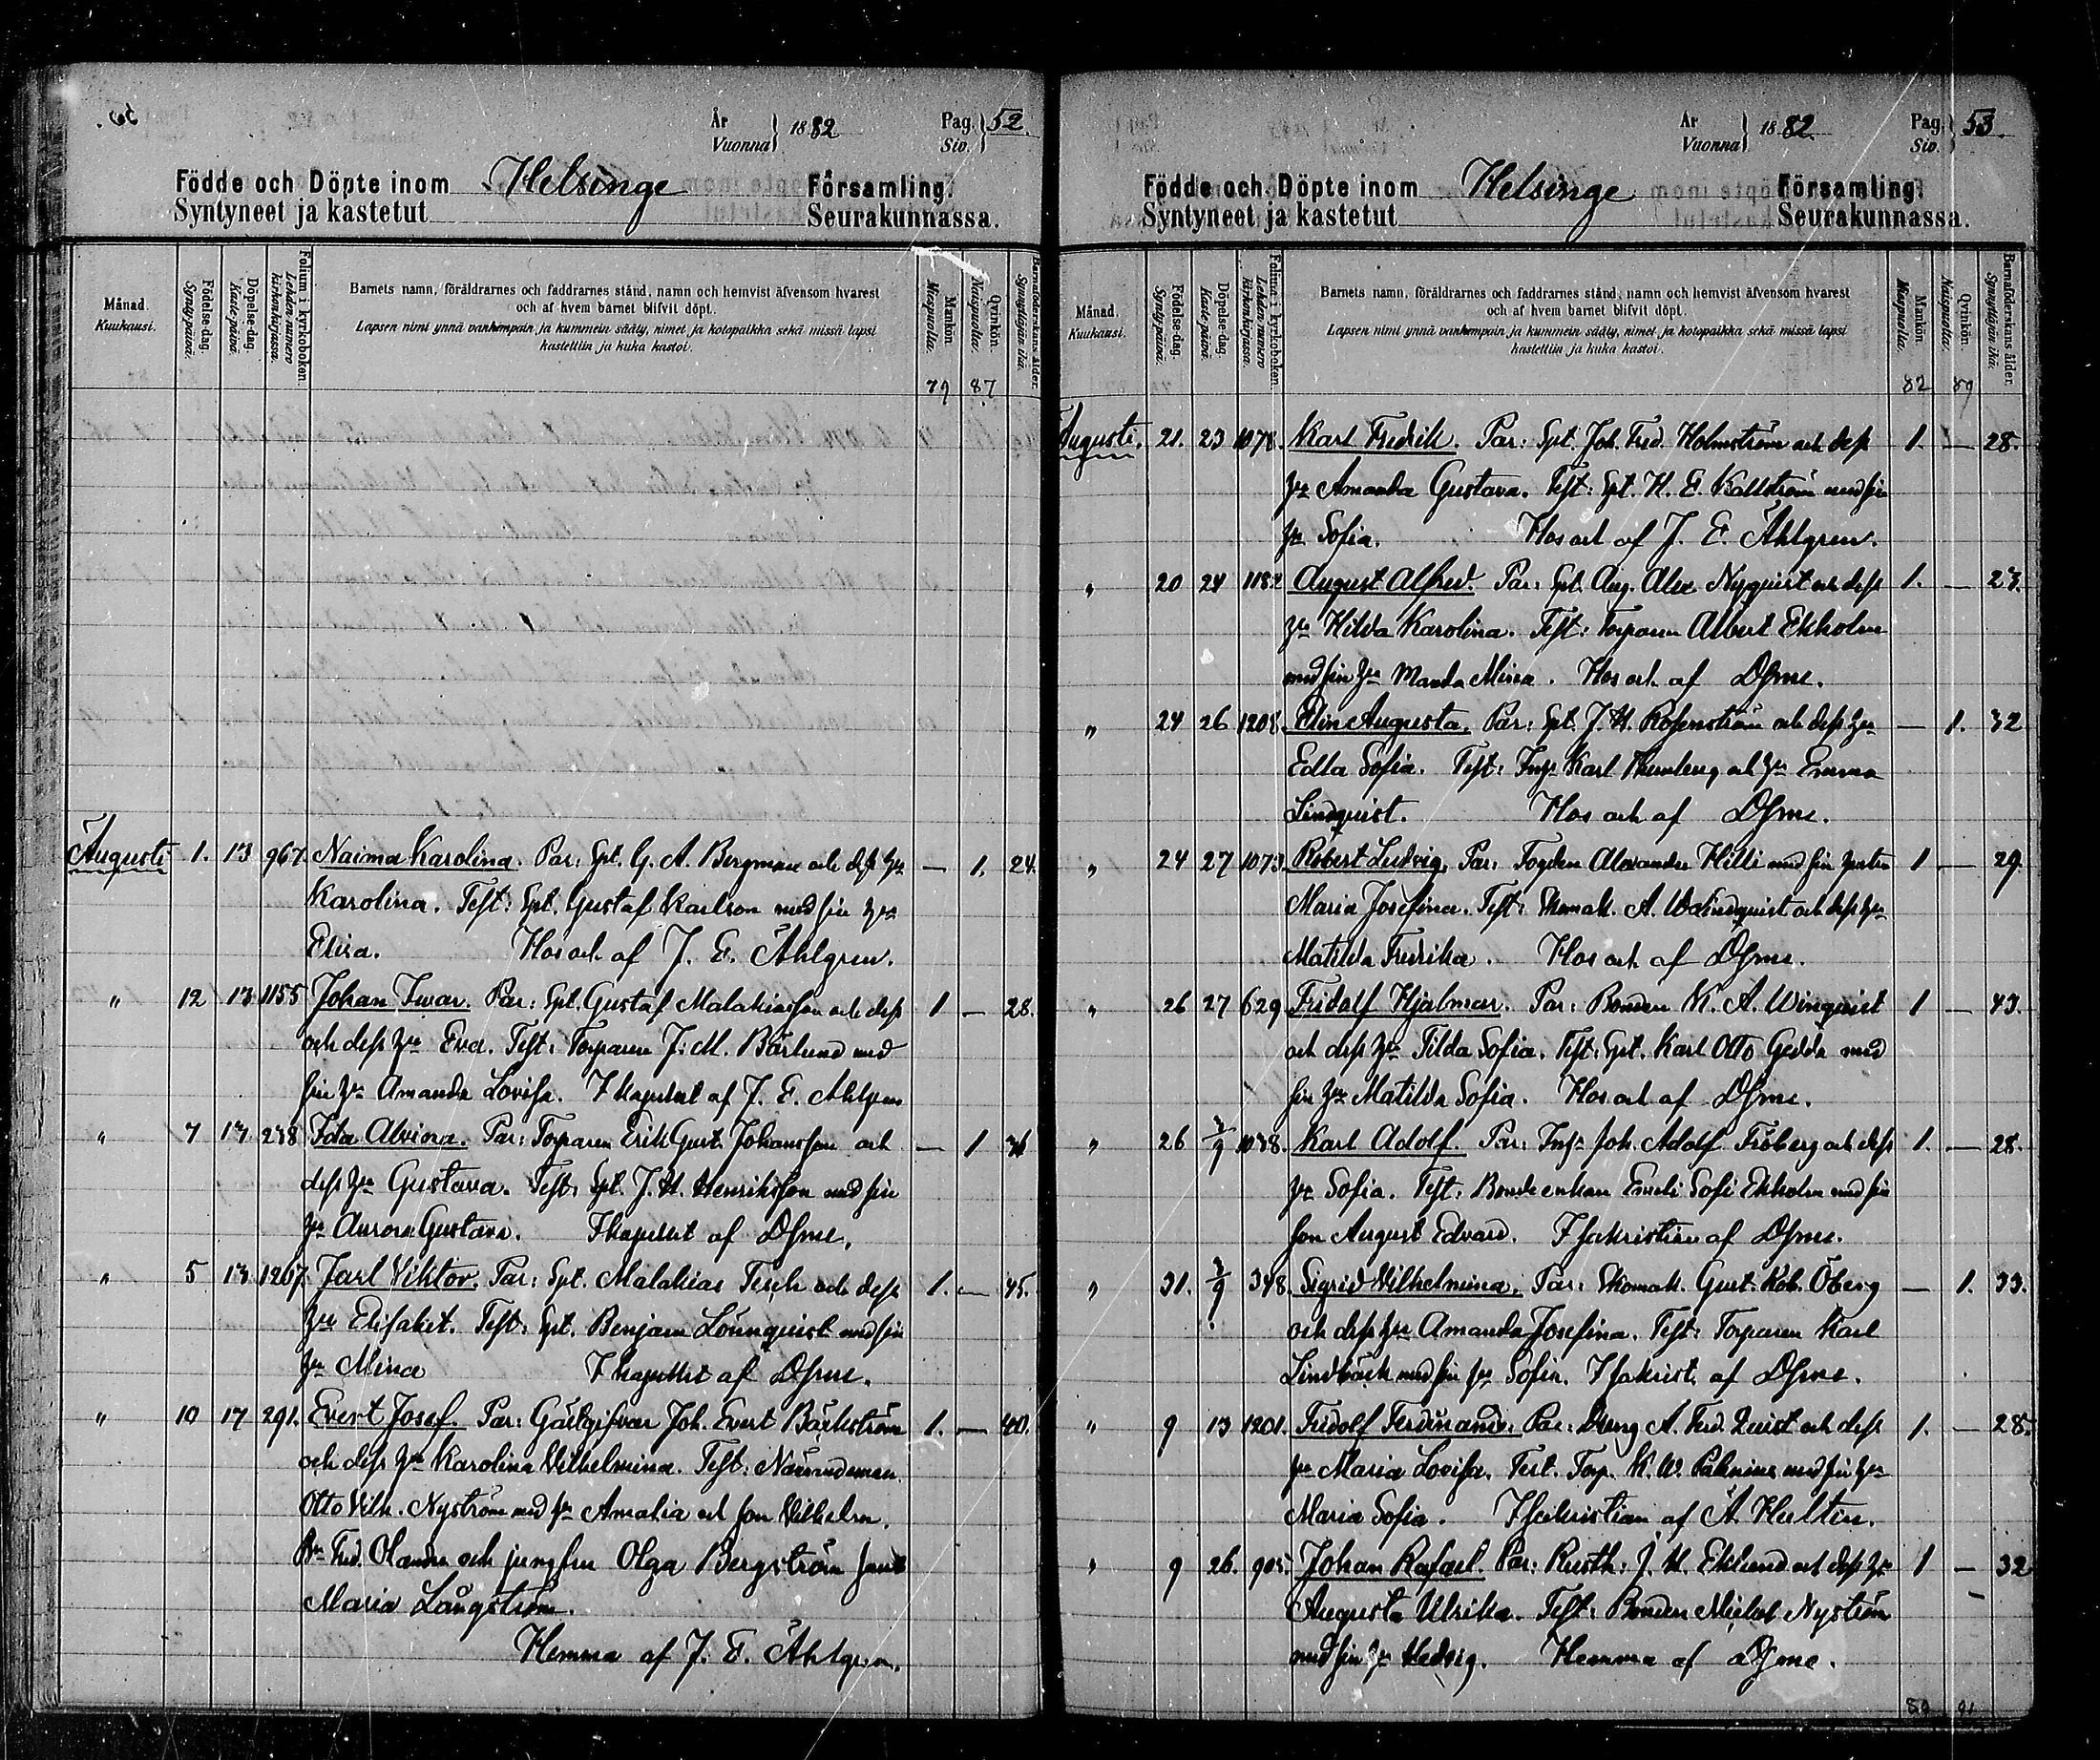 År
Vuonna 1882
Pag.
Siv. 52.
Födde och Döpte inom Helsinge Församling.
Syntyneet ja kastetut Seurakunnassa.
Månad.
Kuukausi.
Födelse-dag.
Synty-päivä.
Döpelse-dag.
Kaste-päivä.
Folium i kyrkoboken.
Lehden numero kirkonkirjassa.
Barnets namn, föräldrarnes och faddrarnes stånd, namn och hemvist äfvensom hvarest
och af hvem barnet blifvit döpt.
Lapsen nimi ynnä vanhempain ja kummein sääty, nimet ja kotopaikka sekä missä lapsi
kastettiin ja kuka kastoi.
Mankön.
Miespuolia.
Qvinkön.
Naispuolia.
Barnaföderskans ålder.
Synnyttäjän ikä.
79 87
Augusti 1. 13 967. Naima Karolina. Par: Spt. G. A. Bergman och dess hu — 1. 24.
Karolina. Test: Spt. Gustaf Karlson med sin hu
Elisa. Hos och af J. E. Åhlgren.
" 12 13 1155 Johan Iwar. Par: Spt. Gustaf Malakiasson och dess 1 — 28.
och dess hu Eva. Test: Torparen J. M. Bärlund med
sin hu Amanda Lovisa. I kapellet af J. E. Ahlgren
" 7 13 238 Ida Alvina. Par: Torparen Erik Gust. Johansson och — 1
dess hu Gustava. Test: Spt. J. H. Henriksson med sin
hu Aurora Gustava. I kapellet af Dsme.
" 5 13 1267. Jarl Viktor. Par: Spt. Malakias Tesch och dess 1. — 45.
hu Elisabet. Test: Spt. Benjam Lönnquist med sin
hu Mina I kapellet af Dsme.
" 10 17 291. Evert Josef. Par: Gästgifvar Joh. Evert Bäckström 1. — 40.
och dess hu Karolina Vilhelmina. Test: Nämndeman
Otto Vilh. Nyström med hu Amalia och son Vilhelm.
Fred. Olander och jungfru Olga Bergström samt
Maria Långström.
Hemma af J. E. Åhlgren.
År
Vuonna 1882
Pag.
Siv. 53
Födde och Döpte inom Helsinge Församling.
Syntyneet ja kastetut Seurakunnassa.
Månad.
Kuukausi.
Födelse-dag.
Synty-päivä.
Döpelse-dag.
Kaste-päivä.
Folium i kyrkoboken.
Lehden numero kirkonkirjassa.
Barnets namn, föräldrarnes och faddrarnes stånd, namn och hemvist äfvensom hvarest
och af hvem barnet blifvit döpt.
Lapsen nimi ynnä vanhempain ja kummein sääty, nimet ja kotopaikka sekä missä lapsi
kastettiin ja kuka kastoi.
Mankön.
Miespuolia.
Qvinkön.
Naispuolia.
Barnaföderskans ålder.
Synnyttäjän ikä.
82 89
Augusti. 21. 23 1078. Karl Fredrik. Par: Spt. Joh. Fred. Holmström och dess 1. — 28.
hu Amanda Gustava. Test: Spt. K. E. Källström med sin
hu Sofia. Hos och af J. E. Åhlgren.
" 20 24 1182 August Alfred. Par: Spt. Aug. Alex. Nyquist och dess 1. — 23.
hu Hilda Karolina. Test: Torparen Albert Ekholm
med sin hu Manda Mina. Hos och af Dsme.
" 24 26 1208. Elin Augusta. Par: Spt. J. H. Rosenström och dess hu — 1. 32
Edla Sofia. Test: Karl och Emma
Lindquist. Hos och af Dsme.
" 24 27 1073. Robert Ludvig. Par: Fogden Alexander Hilli med sin hustru 1 — 29.
Maria Josefina. Test: Skomak. A. W. Lindquist och dess hu
Matilda Fredrika. Hos och af Dsme.
" 26 27 629 Fridolf Hjalmar. Par: Bonden K. A. Winquist 1 — 43.
och dess hu Tilda Sofia. Test: Spt. Karl Otto Gedda med
sin hu Matilda Sofia. Hos och af Dsme.
" 26 3/9 1038. Karl Adolf. Par: Joh. Adolf Fröberg och dess 1. — 28.
hu Sofia. Test: Bondeenkan Emeli Sofi Ekholm med sin
son August Edvard. I sakristian af Dsme.
" 31. 3/9 348. Sigrid Vilhelmina. Par: Skomak. Gust. Rob. Öberg — 1. 33.
och dess hu Amanda Josefina. Test: Torparen Karl
Lindbäck med sin hu Sofia. I sakrist. af Dsme.
" 9 13 1201. Fridolf Ferdinand. Par: Dreng A. Ferd. Quist och dess 1. — 28.
hu Maria Lovisa. Test. Torp. K. W. Palenius med sin hu
Maria Sofia. I sakristian af A. Hulten.
" 9 26. 905. Johan Rafael. Par: Rusth: J. H. Eklund och dess hu 1 — 32
Augusta Ulrika. Test: Bonden Mickel Nyström
med sin hu Hedvig. Hemma af Dsme.
89 91